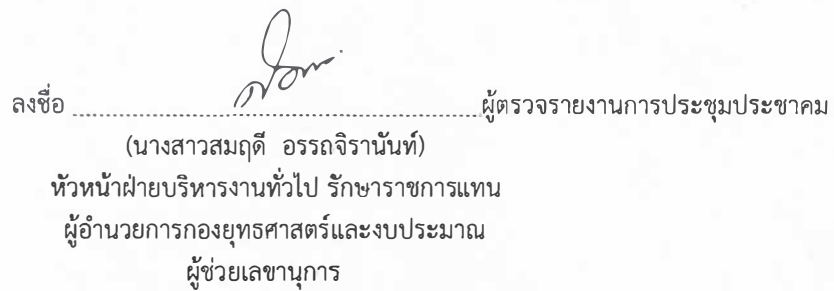 ลงชื่อ ........................................................ผู้ตรวจรายงานการประชุมประชาคม
(นางสาวสมฤดี อรรถจิรานันท์)
หัวหน้าฝ่ายบริหารงานทั่วไป รักษาราชการแทน
ผู้อำนวยการกองยุทธศาสตร์และงบประมาณ
ผู้ช่วยเลขานุการ